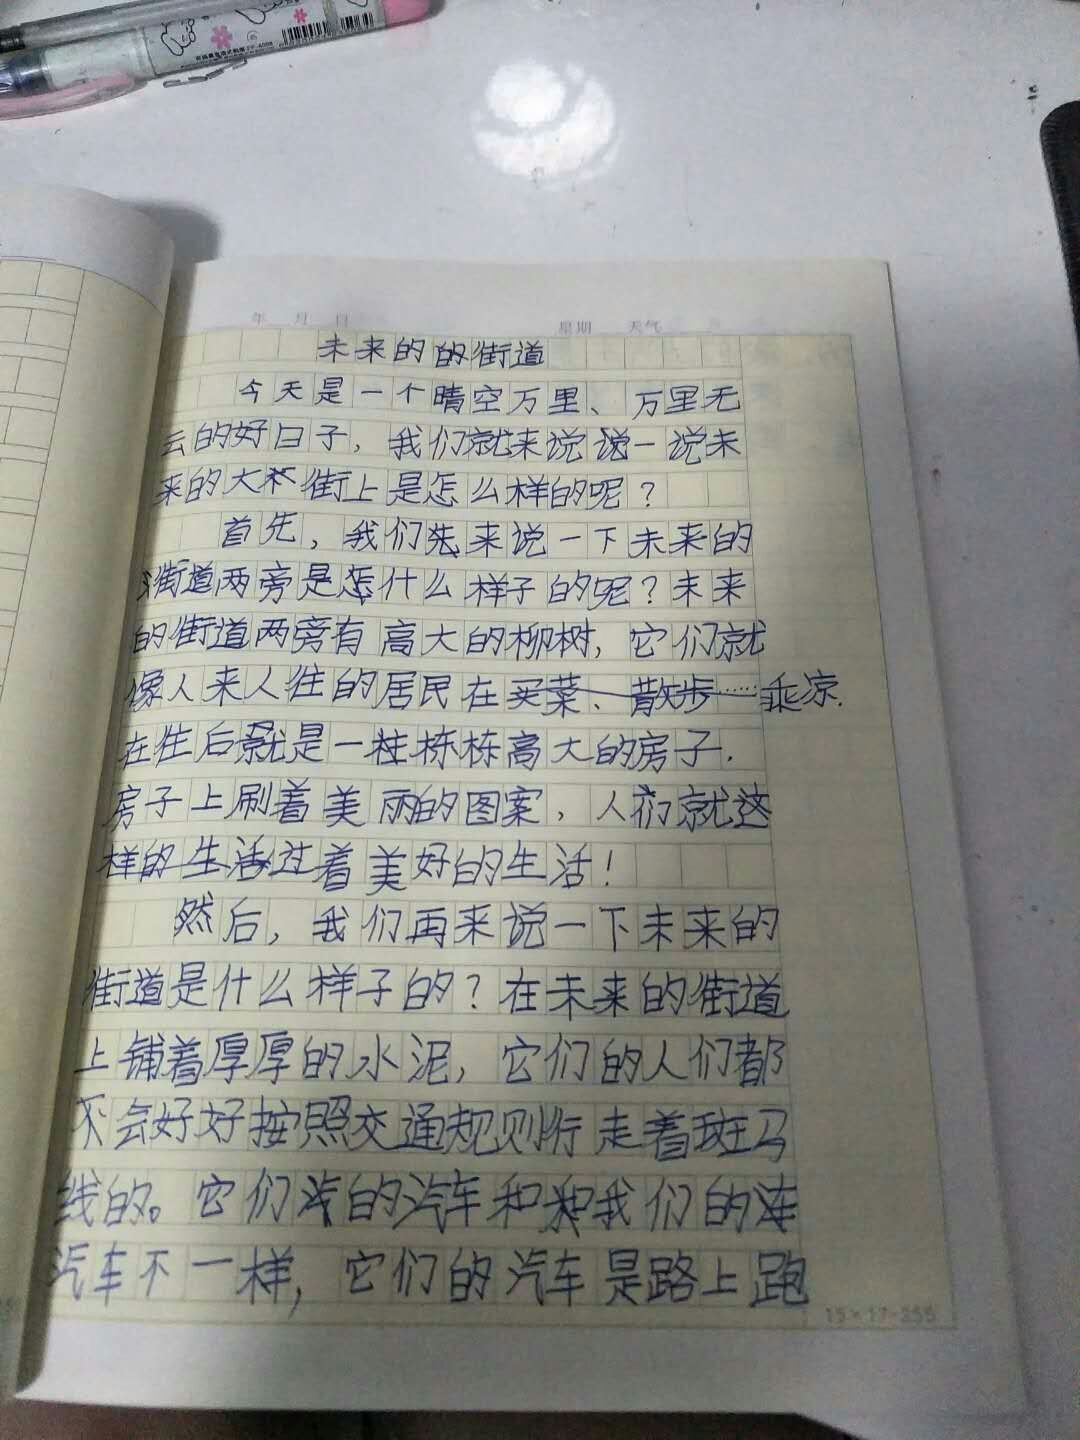 年 月 日 星期 天气
未来的的街道
今天是一个晴空万里、万里无
云的好日子，我们就来说说一说未
来的大街上是怎么样的呢？
首先，我们先来说一下未来的
街道两旁是怎什么样子的呢？未来
的街道两旁有高大的柳树，它们就
像人来人往的居民在买菜、散步……乘凉.
在往后就是一柱栋栋高大的房子.
房子上刷着美丽的图案，人们就这
样的生活过着美好的生活！
然后，我们再来说一下未来的
街道是什么样子的？在未来的街道
上铺着厚厚的水泥，它们的人们都
不会好好按照交通规则行走着斑马
线的。它们汽的汽车和和我们的
汽车不一样，它们的汽车是路上跑
15×17=255